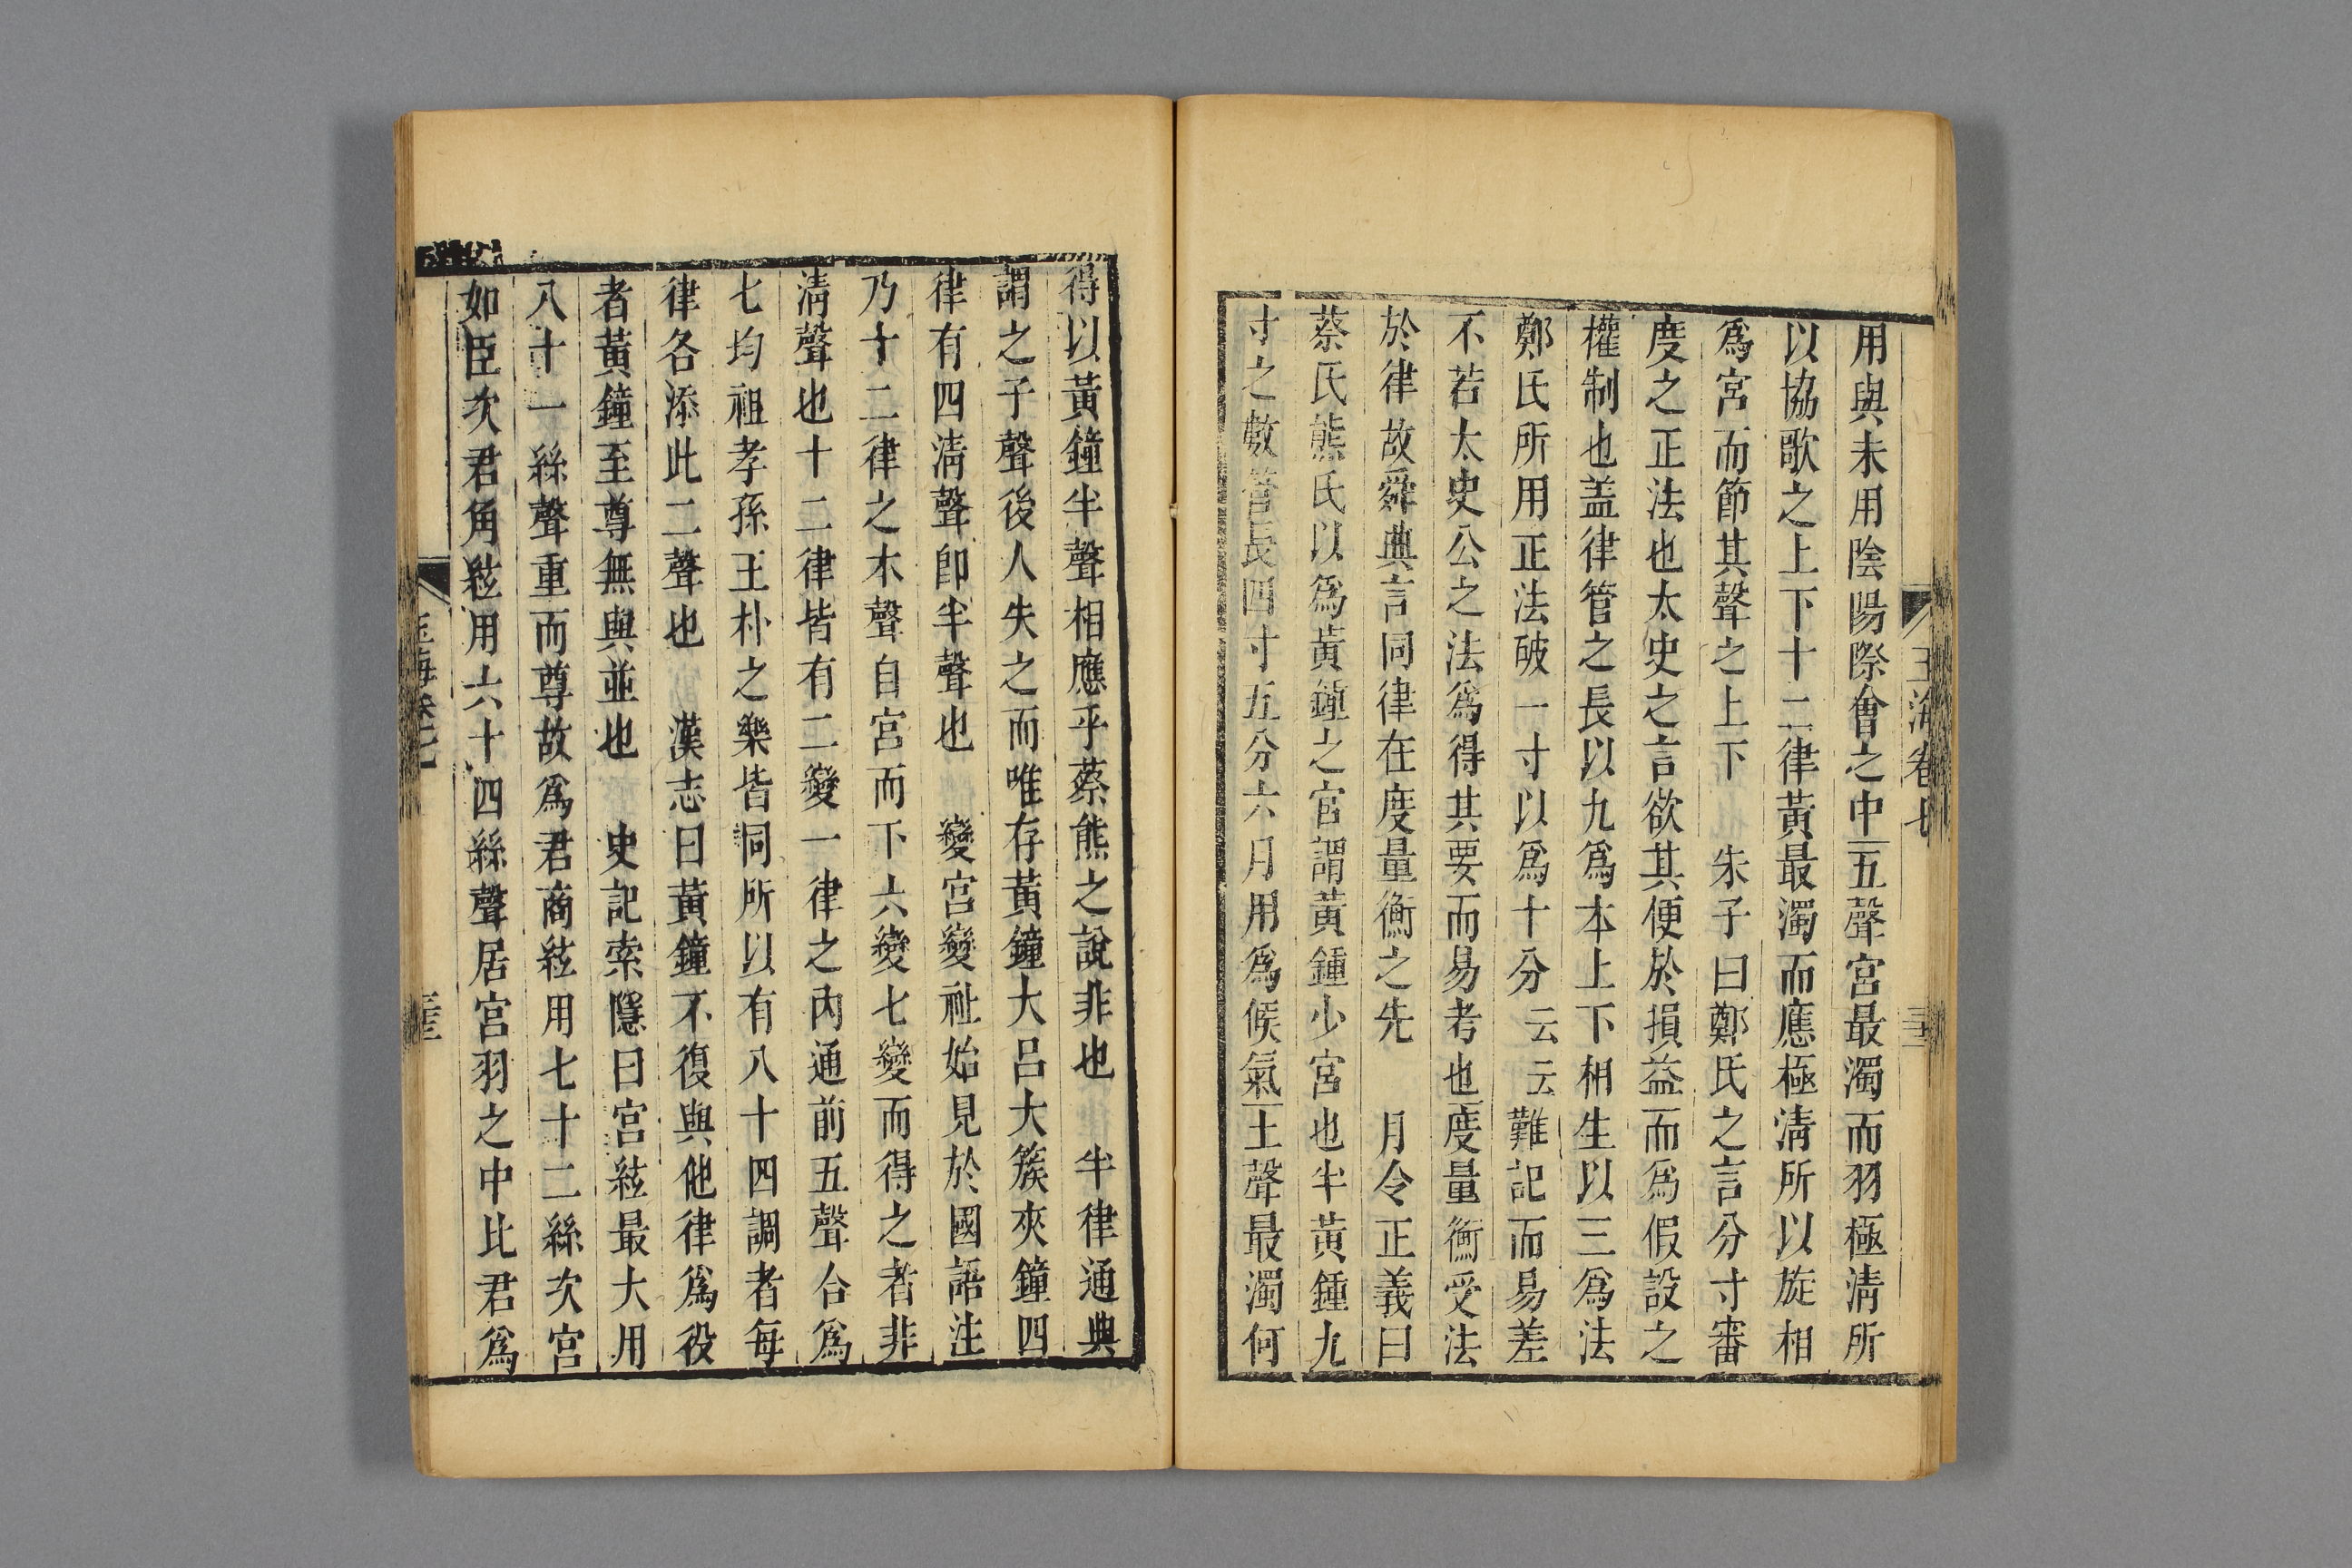 玉海卷七
用與未用陰陽際會之中五聲宮最濁而羽極清所
以協歌之上下十二律黃最濁而應極清所以旋相
爲宮而節其聲之上下 朱子曰鄭氏之言分寸審
度之正法也太史之言欲其便於損益而爲假設之
權制也盖律管之長以九爲本上下相生以三爲法
鄭氏所用正法破一寸以爲十分云云難記而易差
不若太史公之法爲得其要而易考也度量衡受法
於律故舜典言同律在度量衡之先 月令正義曰
蔡氏熊氏以爲黃鍾之宮謂黃鍾少宮也半黃鍾九
寸之數管長四寸五分六月用爲候氣土聲最濁何
得以黃鐘半聲相應乎蔡熊之說非也 半律通典
謂之子聲後人失之而唯存黃鐘大呂大簇夾鐘四
律有四清聲卽半聲也 變宮變祉始見於國語注
乃十二律之木聲自宮而下六變七變而得之者非
清聲也十二律皆有二變一律之内通前五聲合爲
七均祖孝孫王朴之樂皆同所以有八十四調者每
律各添此二聲也 漢志曰黃鐘不復與他律爲役
者黃鐘至尊無與並也 史記索隱曰宮絃最大用
八十一絲聲重而尊故爲君商絃用七十二絲次宮
如臣次君角絃用六十四絲聲居宮羽之中比君爲
玉海卷七